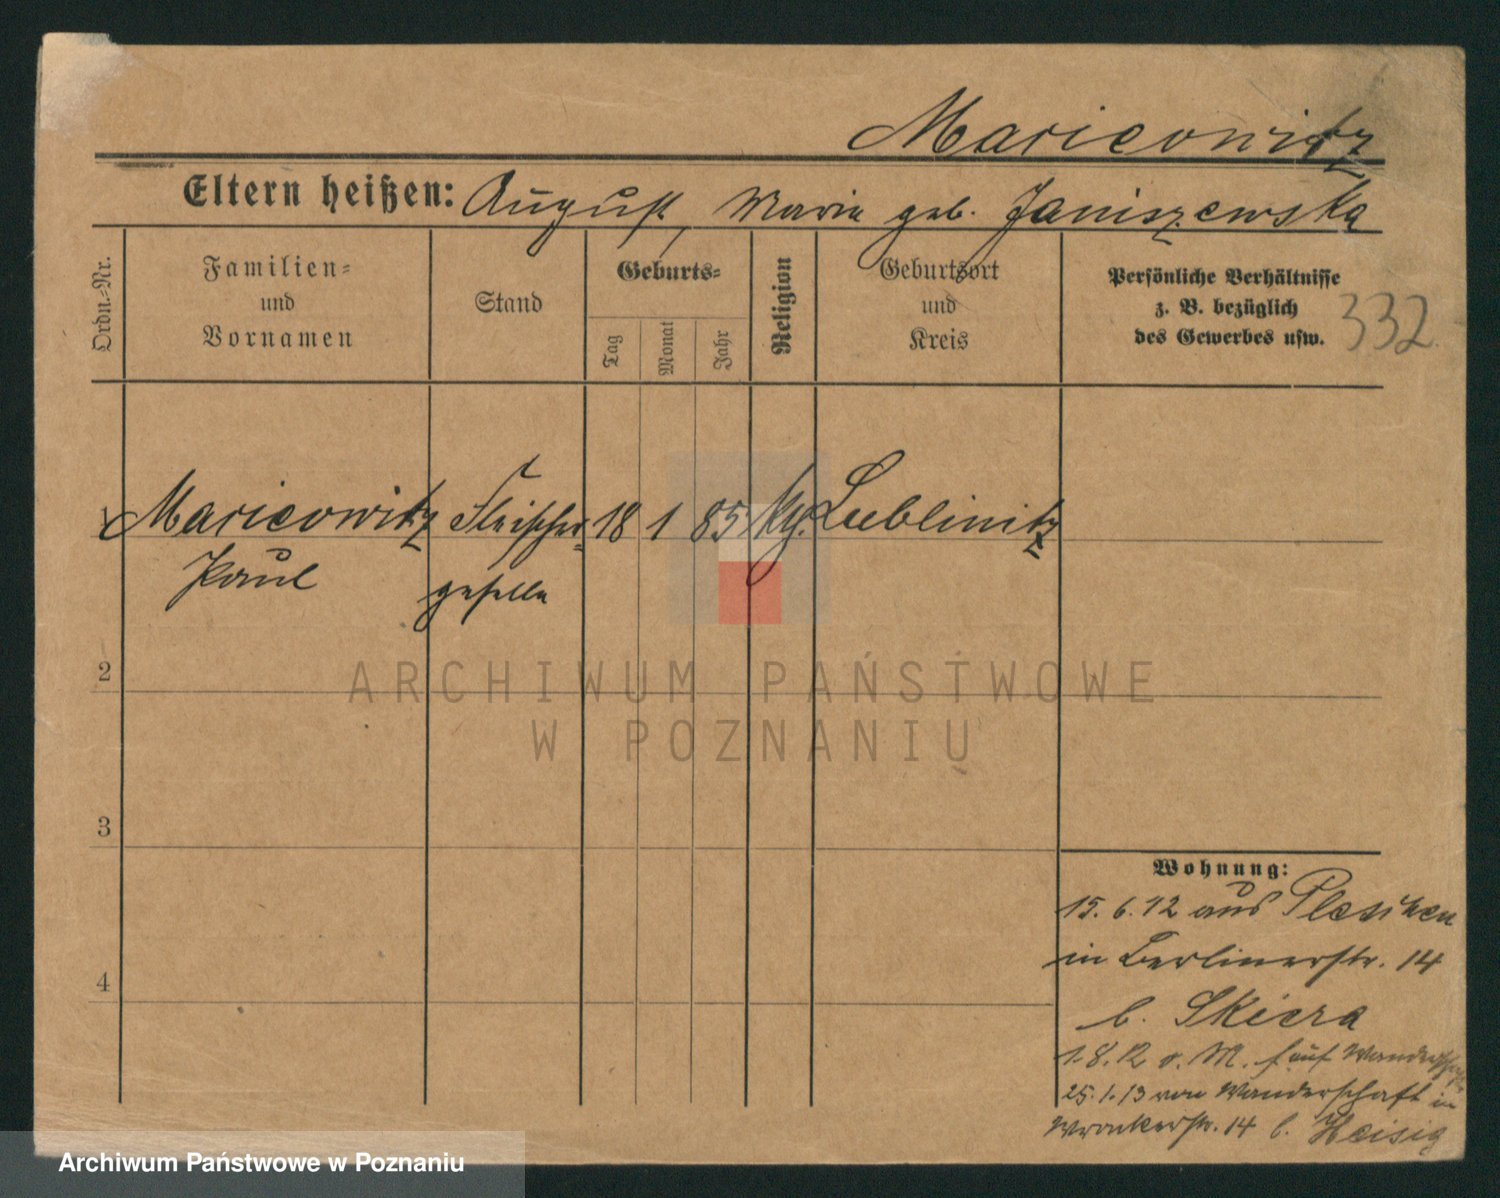 Maricowitz
Eltern heißen: August, Maria geb. Janiszewska
Ordn.-Nr.
Familien-
und
Vornamen
Stand
Geburts-
Tag
Monat
Jahr
Religion
Geburtsort
und
Kreis
Persönliche Verhältnisse
z. B. bezüglich
des Gewerbes usw.
332
1 Maricowitz Fleischer- 18 1 85 kg. Lublinitz
Paul geselle
2
ARCHIWUM PAŃSTWOWE
W POZNANIU
3
4
Wohnung:
15.6.12 aus
in Berlinerstr. 14
b. Skiera
1.8.12 v. M. auf Wanderschaft
25.1.13 von Wanderschaft in
Wronkerstr. 14 b. Heisig
Archiwum Państwowe w Poznaniu